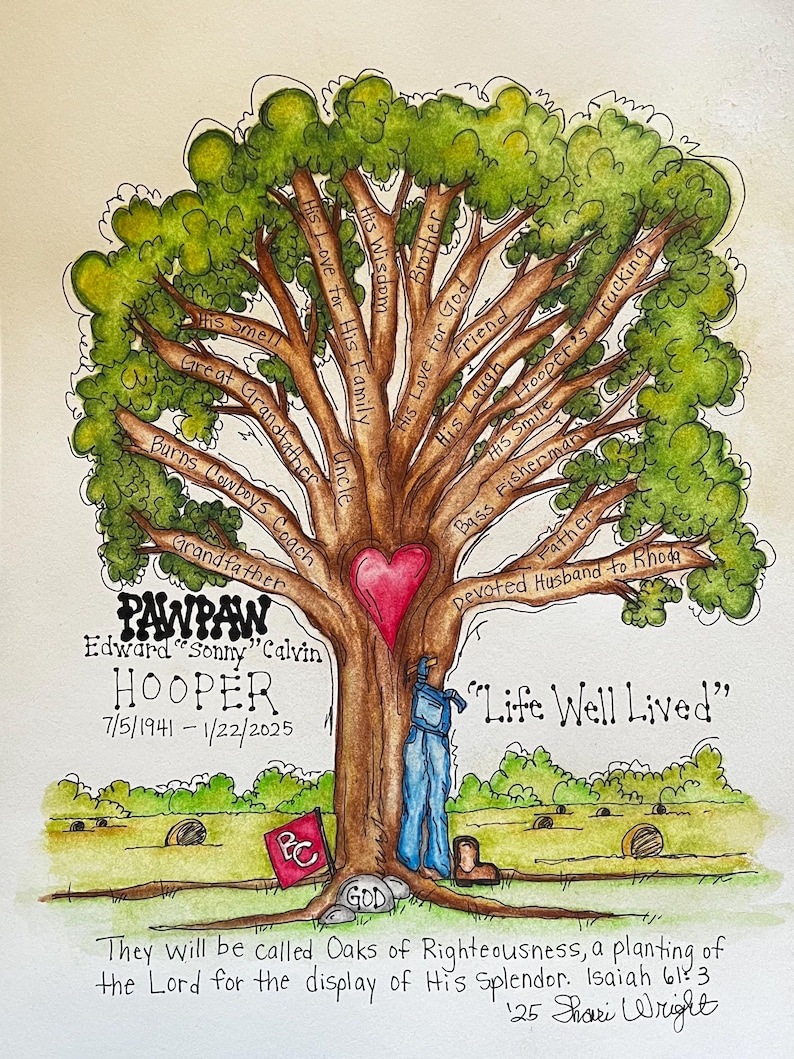 His Love for His Family
His Wisdom
Brother
His Love for God
Friend
His Laugh
Hooper's Trucking
His Smile
Bass Fisherman
Father
Devoted Husband to Rhoda
His Smell
Great Grandfather
Uncle
Burns Cowboys Coach
Grandfather
PAWPAW
Edward "Sonny" Calvin
HOOPER
7/5/1941 – 1/22/2025
"Life Well Lived"
BC
GOD
They will be called Oaks of Righteousness, a planting of
the Lord for the display of His Splendor. Isaiah 61:3
'25 Shari Wright